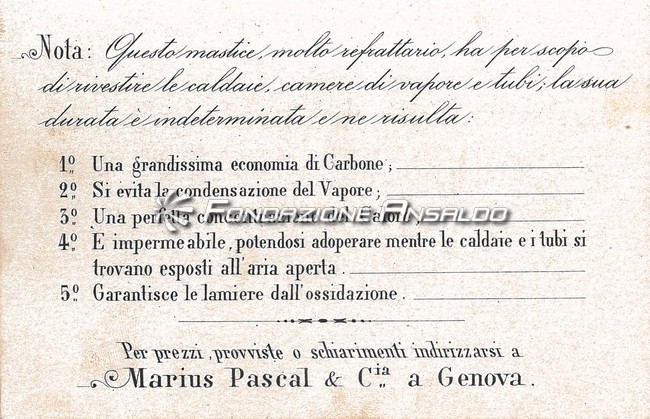 Nota: Questo mastice, molto refrattario, ha per scopo
di rivestire le caldaie, camere di vapore e tubi; la sua
durata è indeterminata e ne risulta:
1º Una grandissima economia di Carbone;
2º Si evita la condensazione del Vapore;
3º Una perfetta concentrazione del Calore;
FONDAZIONE ANSALDO
4º È impermeabile, potendosi adoperare mentre le caldaie e i tubi si
trovano esposti all'aria aperta.
5º Garantisce le lamiere dall'ossidazione.
Per prezzi, provviste o schiarimenti indirizzarsi a
Marius Pascal & Cia a Genova.